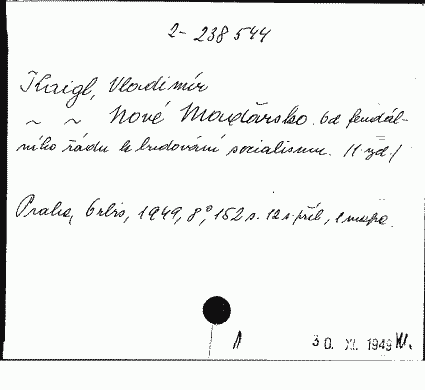 2-238544
Kaigl, Vladimír
~ ~ Nové Maďarsko. Od feudál-
ního řádu k budování socialismu. (1 vyd.)
Praha, Orbis, 1949, 8°, 152 s. 12 s. příl., 1 mapa.
30. XI. 1949